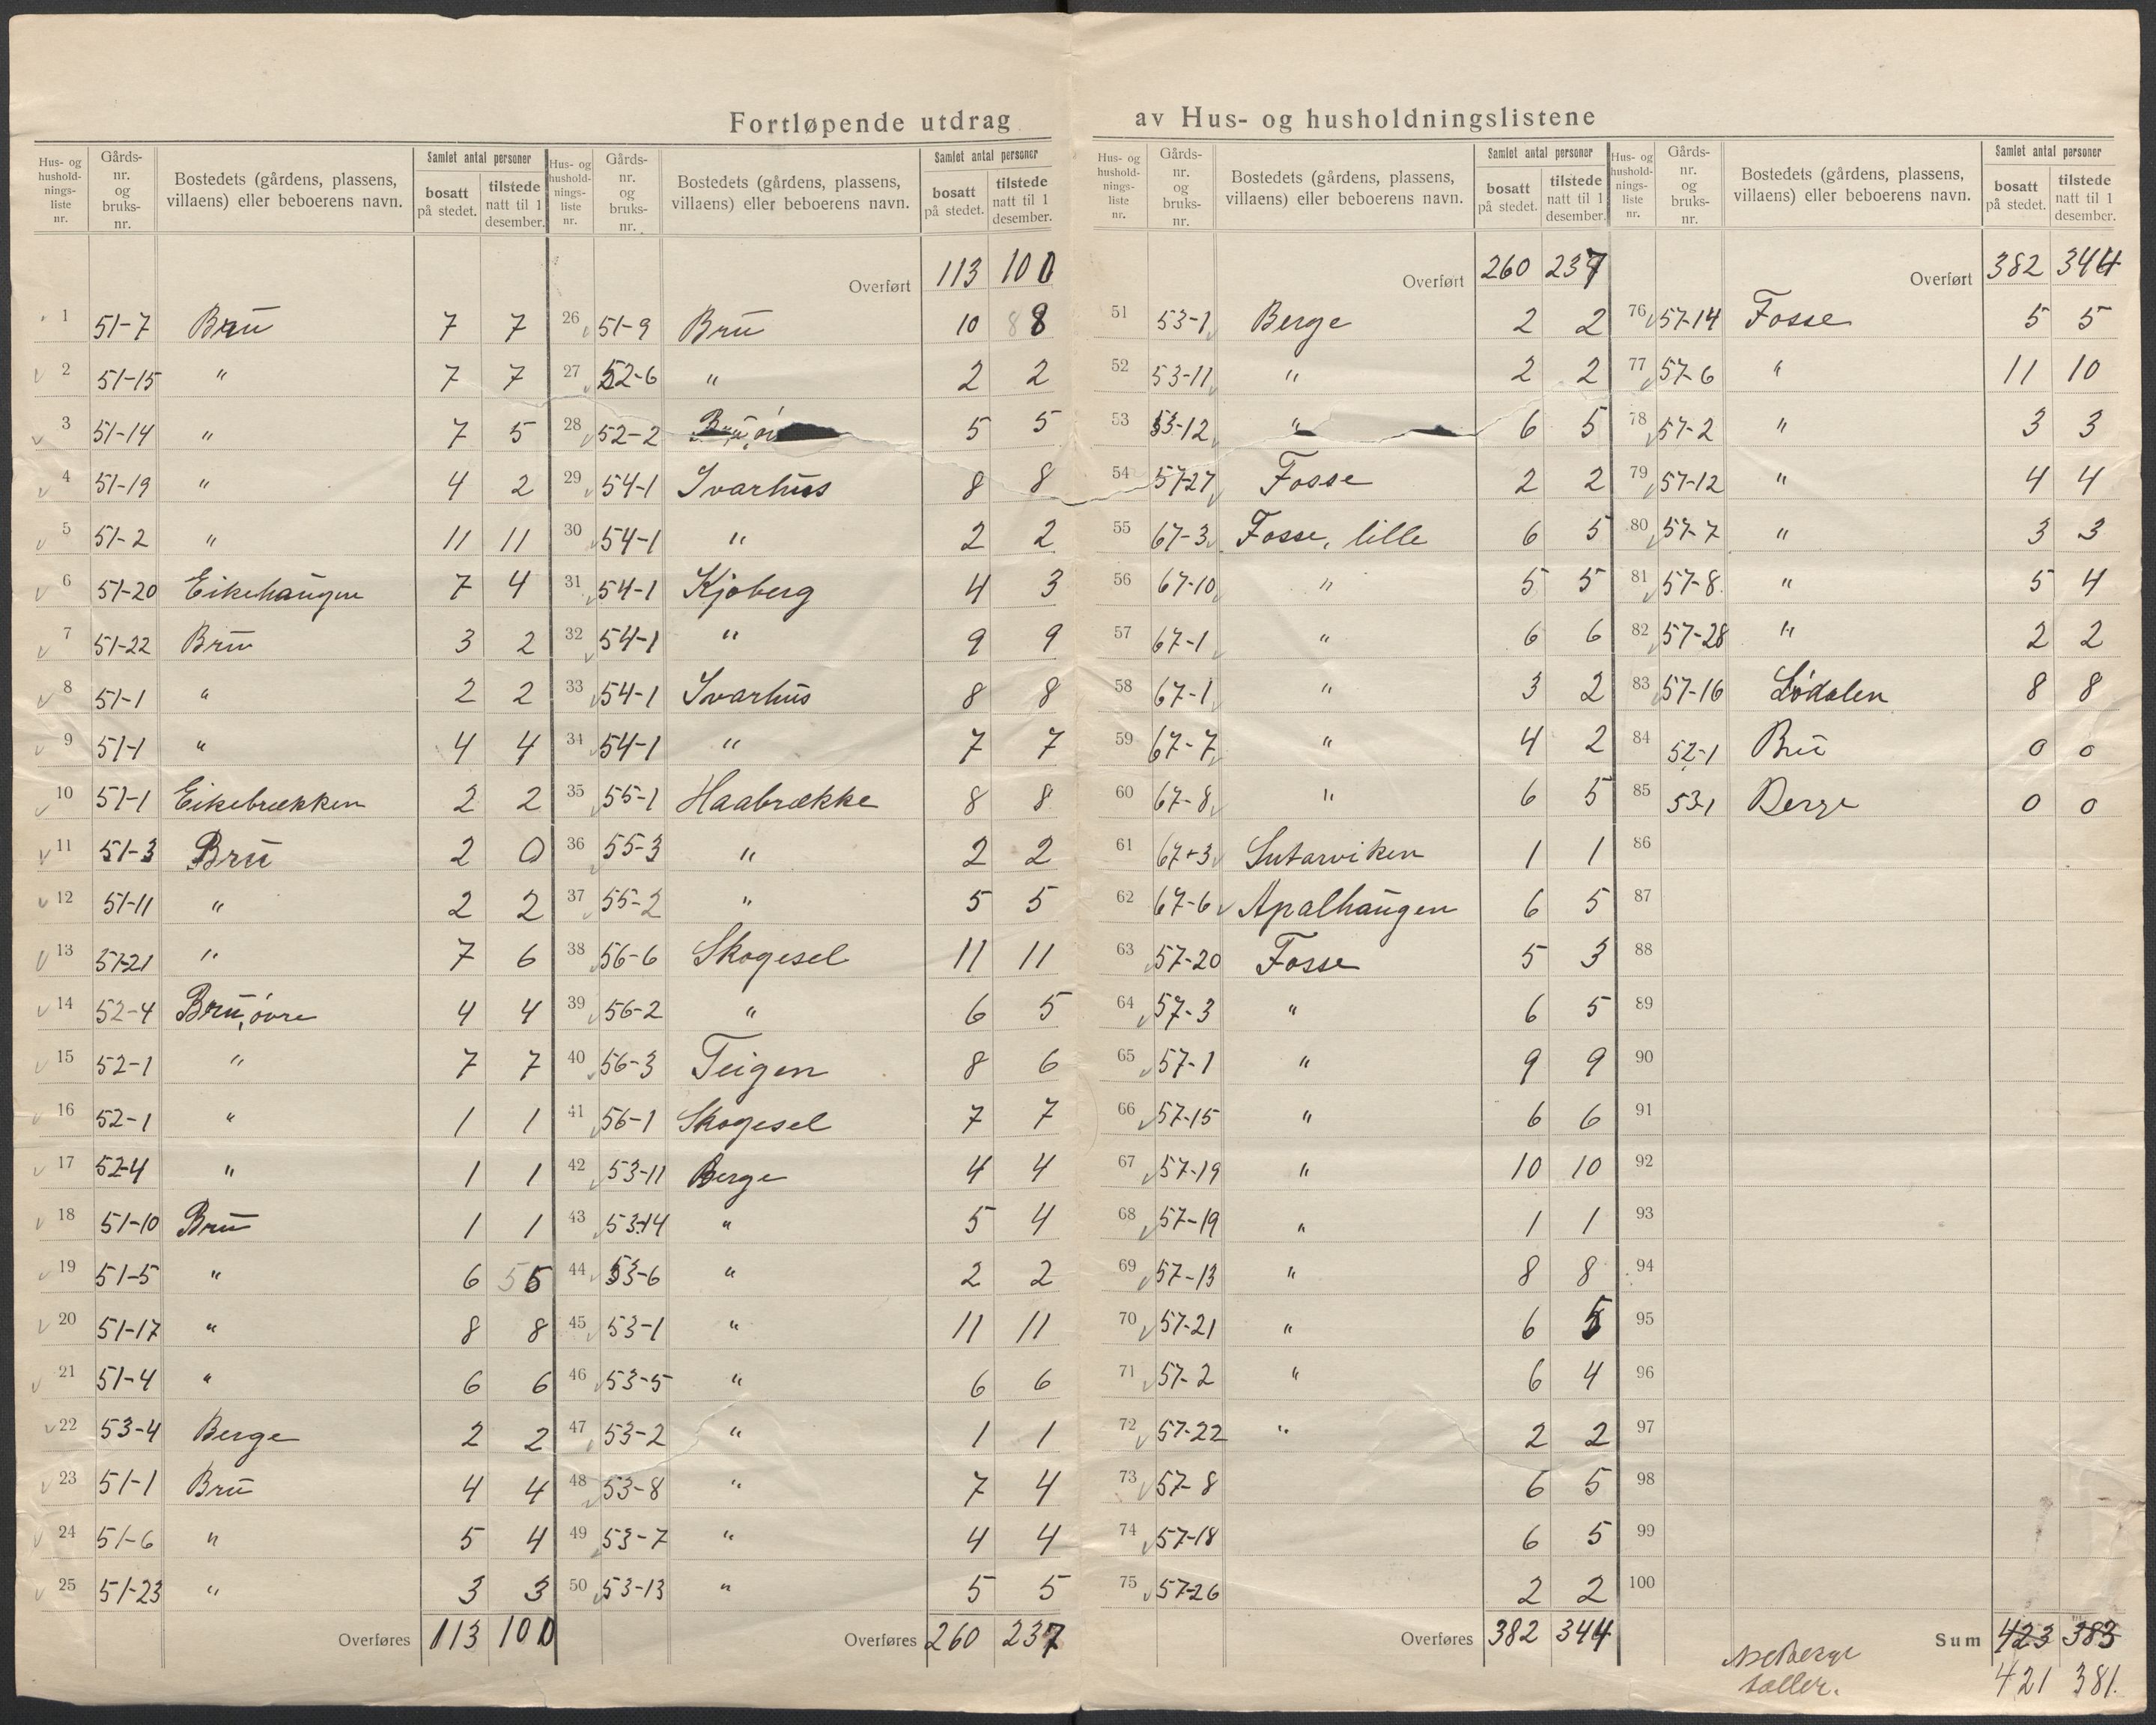 Fortløpende utdrag av Hus- og husholdningslistene
Hus- og husholdnings-liste nr. Gårds-nr. og bruks-nr. Bostedets (gårdens, plassens, villaens) eller beboerens navn. Samlet antal personer bosatt på stedet. tilstede natt til 1 desember.
1 51-7 Bru 7 7
2 51-15 " 7 7
3 51-14 " 7 5
4 51-19 " 4 2
5 51-2 " 11 11
6 51-20 Eikehaugen 7 4
7 51-22 Bru 3 2
8 51-1 " 2 2
9 51-1 " 4 4
10 51-1 Eikebrækken 2 2
11 51-3 Bru 2 0
12 51-11 " 2 2
13 51-21 " 7 6
14 52-4 Bru, øvre 4 4
15 52-1 " 7 7
16 52-1 " 1 1
17 52-4 " 1 1
18 51-10 Bru 1 1
19 51-5 " 6 5
20 51-17 " 8 8
21 51-4 " 6 6
22 53-4 Berge 2 2
23 51-1 Bru 4 4
24 51-6 " 5 4
25 51-23 " 3 3
Overføres 113 100
Hus- og husholdnings-liste nr. Gårds-nr. og bruks-nr. Bostedets (gårdens, plassens, villaens) eller beboerens navn. Samlet antal personer bosatt på stedet. tilstede natt til 1 desember.
Overført 113 100
26 51-9 Bru 10 8 8
27 52-6 " 2 2
28 52-2 Bru, 5 5
29 54-1 Ivarhus 8 8
30 54-1 " 2 2
31 54-1 Kjøberg 4 3
32 54-1 " 9 9
33 54-1 Ivarhus 8 8
34 54-1 " 7 7
35 55-1 Haabrække 8 8
36 55-3 " 2 2
37 55-2 " 5 5
38 56-6 Skogesel 11 11
39 56-2 " 6 5
40 56-3 Teigen 8 6
41 56-1 Skogesel 7 7
42 53-11 Berge 4 4
43 53-14 " 5 4
44 53-6 " 2 2
45 53-1 " 11 11
46 53-5 " 6 6
47 53-2 " 1 1
48 53-8 " 7 4
49 53-7 " 4 4
50 53-13 " 5 5
Overføres 260 237
Hus- og husholdnings-liste nr. Gårds-nr. og bruks-nr. Bostedets (gårdens, plassens, villaens) eller beboerens navn. Samlet antal personer bosatt på stedet. tilstede natt til 1 desember.
Overført 260 237
51 53-1 Berge 2 2
52 53-11 " 2 2
53 53-12 " 6 5
54 57-27 Fosse 2 2
55 67-3 Fosse, lille 6 5
56 67-10 " 5 5
57 67-1 " 6 6
58 67-1 " 3 2
59 67-7 " 4 2
60 67-8 " 6 5
61 67-3 Sutarviken 1 1
62 67-6 Apalhaugen 6 5
63 57-20 Fosse 5 3
64 57-3 " 6 5
65 57-1 " 9 9
66 57-15 " 6 6
67 57-19 " 10 10
68 57-19 " 1 1
69 57-13 " 8 8
70 57-21 " 6 5
71 57-2 " 6 4
72 57-22 " 2 2
73 57-8 6 5
74 57-18 6 5
75 57-26 2 2
Overføres 382 344
Hus- og husholdnings-liste nr. Gårds-nr. og bruks-nr. Bostedets (gårdens, plassens, villaens) eller beboerens navn. Samlet antal personer bosatt på stedet. tilstede natt til 1 desember.
Overført 382 344
76 57-14 Fosse 5 5
77 57-6 " 11 10
78 57-2 " 3 3
79 57-12 " 4 4
80 57-7 " 3 3
81 57-8 " 5 4
82 57-28 " 2 2
83 57-16 Lødalen 8 8
84 52-1 Bru 0 0
85 53-1 Berge 0 0
86
87
88
89
90
91
92
93
94
95
96
97
98
99
100
Sum 423 383
421 381.
teller.